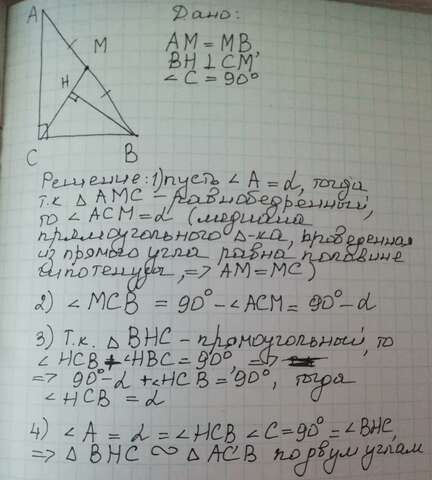 A
Дано:
M
AM = MB,
H
BH ⊥ CM,
∠C = 90°
C
B
Решение: 1) пусть ∠A = α, тогда
т.к △ AMC - равнобедренный,
то ∠ACM = α (медиана
прямоугольного △-ка, проведенная
из прямого угла равна половине
гипотенузы, => AM = MC)
2) ∠MCB = 90° - ∠ACM = 90° - α
3) Т.к. △ BHC - прямоугольный, то
∠HCB + ∠HBC = 90°, =>
=> 90° - α + ∠HCB = 90°, тогда
∠HCB = α
4) ∠A = α = ∠HCB ∠C = 90° = ∠BHC,
=> △ BHC ∾ △ ACB по двум углам